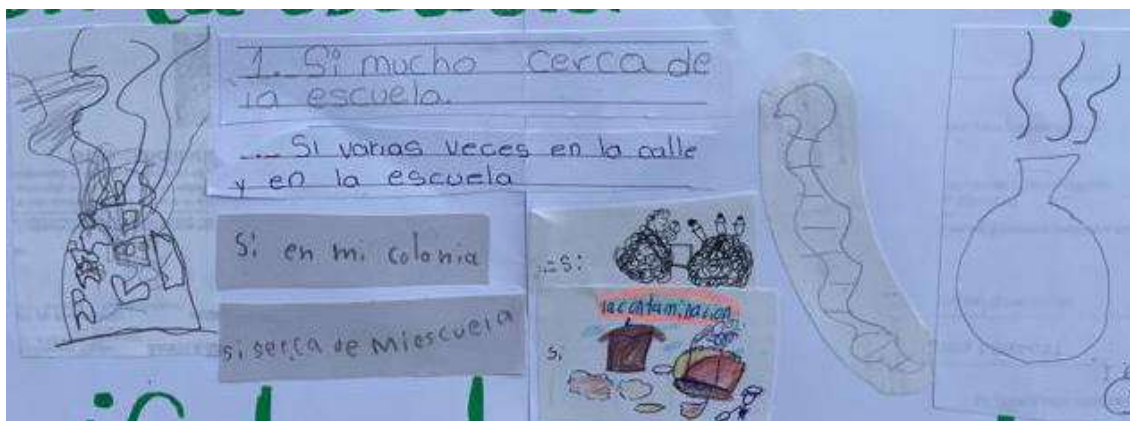 1.- Si mucho cerca de
la escuela.
.- Si varias veces en la calle
y en la escuela
Si en mi colonia
si serca de Miescuela
.- Si
la contaminacion
Si